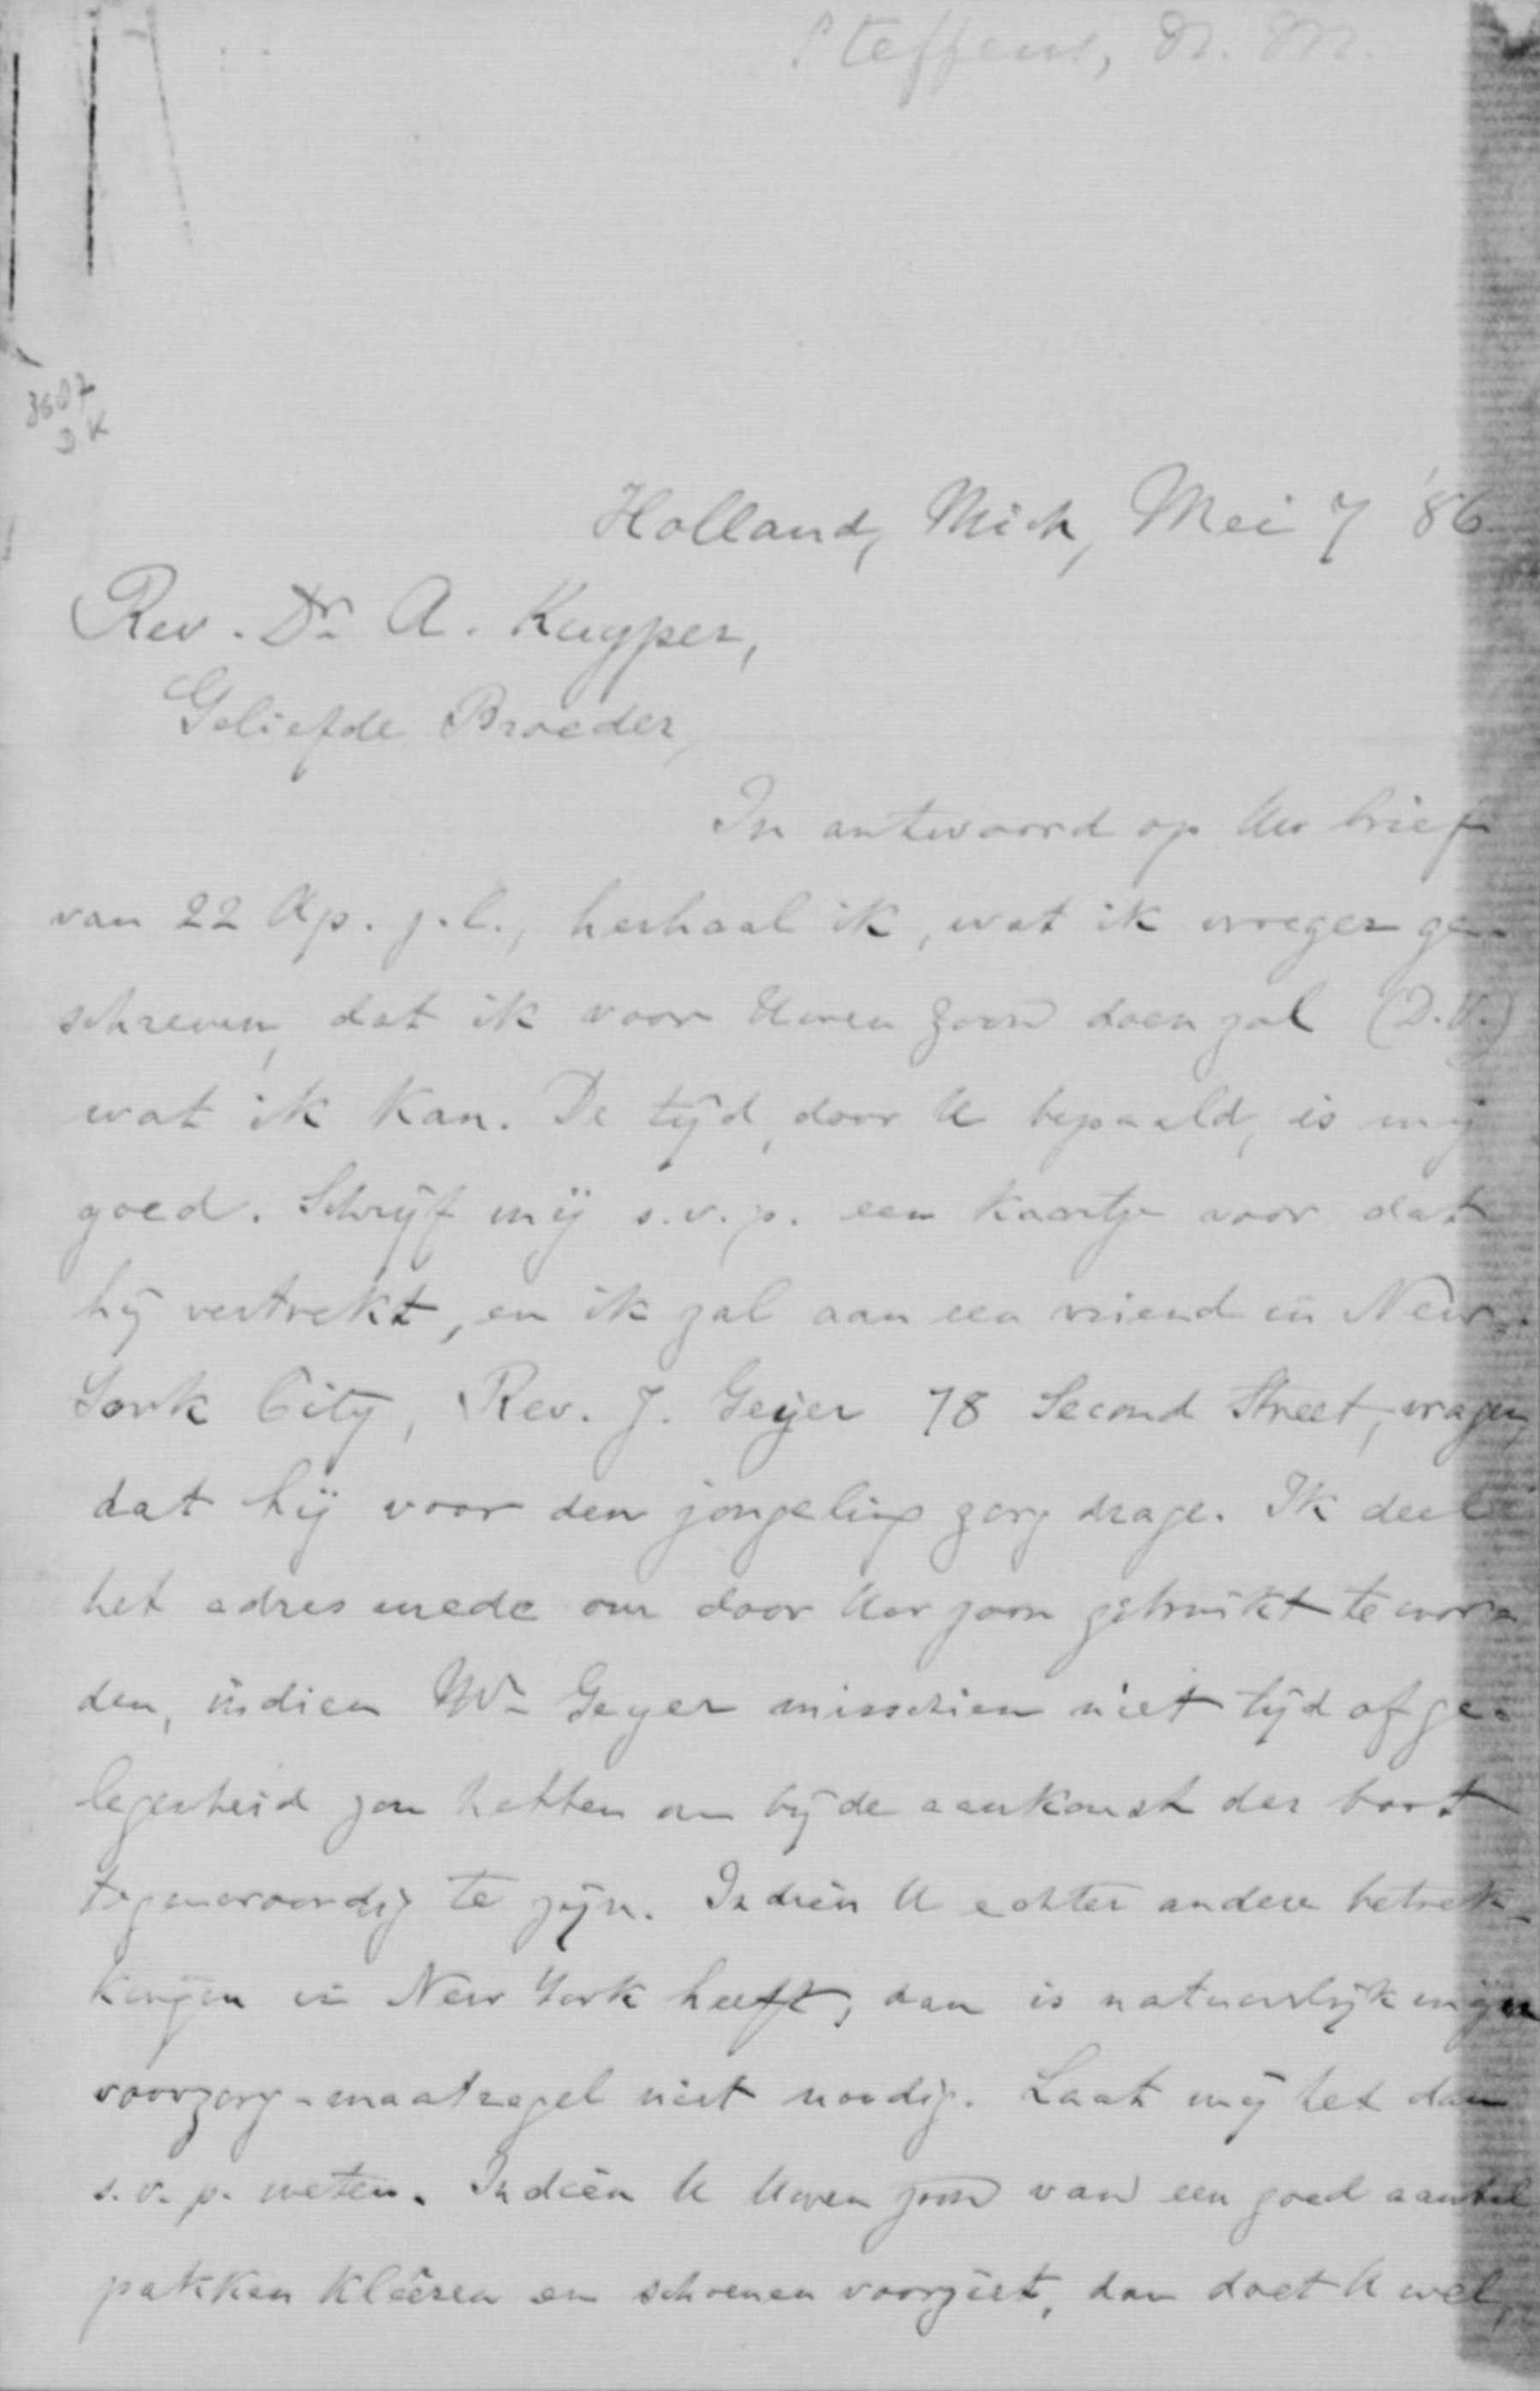 Steffens, N. M.
3607
DK
Holland, Mich, Mei 7 '86
Rev. Dr. A. Kuyper,
Geliefde Broeder,
In antwoord op Uw brief
van 22 Ap. j.l., herhaal ik, wat ik vroeger ge-
schreven, dat ik voor Uwen zoon doen zal (D.V.)
wat ik kan. De tijd, door U bepaald, is mij
goed. Schrijf mij s.v.p. een kaartje voor dat
hij vertrekt, en ik zal aan een vriend in New-
York City, Rev. J. Geyer 78 Second Street, vragen,
dat hij voor den jongeling zorg drage. Ik deel
het adres mede om door Uw zoon gebruikt te wor-
den, indien Mr. Geyer misschien niet tijd of ge-
legenheid zou hebben om bij de aankomst der boot
tegenwoordig te zijn. Indien U echter andere betrek-
kingen in New York heeft, dan is natuurlijk mijn
voorzorg-maatregel niet noodig. Laat mij het dan
s.v.p. weten. Indien U Uwen zoon van een goed aantal
pakken kleêren en schoenen voorziet, dan doet U wel,